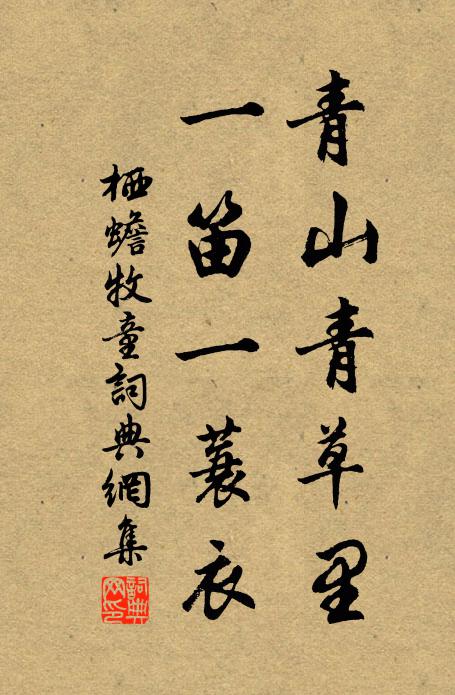 青山青草里
一笛一蓑衣
栖蟾牧童詞典網集
詞典
网印